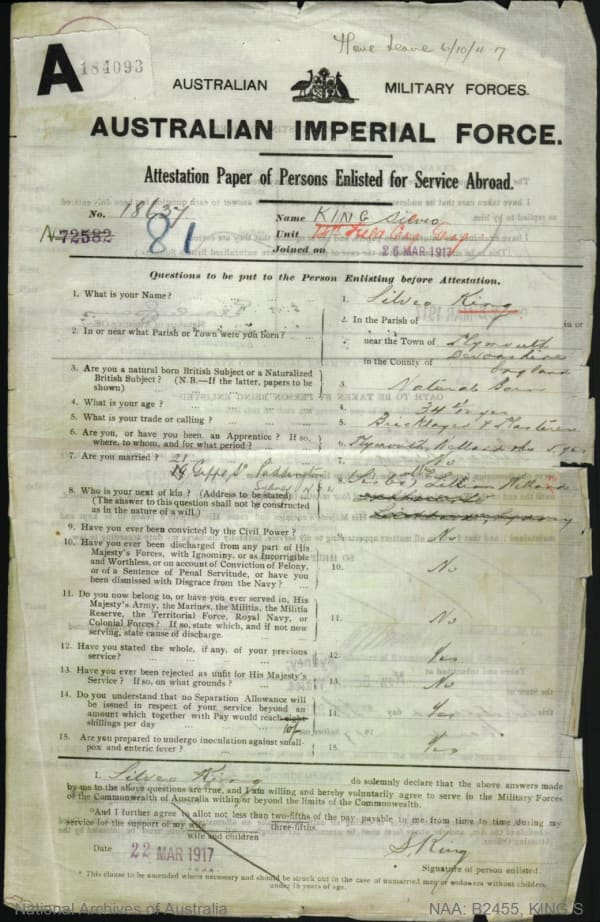 Have Leave 6/10/11-17
A 184093
AUSTRALIAN MILITARY FORCES.
AUSTRALIAN IMPERIAL FORCE.
Attestation Paper of Persons Enlisted for Service Abroad.
No. 18637 Name KING Silveo
N-72582 81 Unit
Joined on 26 MAR 1917
Questions to be put to the Person Enlisting before Attestation.
1. What is your Name? ... 1. Silveo King
2. In or near what Parish or Town were you born? ... 2. In the Parish of in or
near the Town of Plymouth
in the County of Devonshire
England
3. Are you a natural born British Subject or a Naturalized
British Subject? (N.B.—If the latter, papers to be
shown) 3. Natural Born
4. What is your age? 4. 34
5. What is your trade or calling? 5. Bricklayer & Plasterer
6. Are you, or have you been, an Apprentice? If so,
where, to whom, and for what period? 6. Plymouth
7. Are you married? 7. No
21
Paddington
Sydney
8. Who is your next of kin? (Address to be stated)
(The answer to this question shall not be construed
as in the nature of a will.) 8. Lillian
9. Have you ever been convicted by the Civil Power? 9. No
10. Have you ever been discharged from any part of His
Majesty's Forces, with Ignominy, or as Incorrigible
and Worthless, or on account of Conviction of Felony,
or of a Sentence of Penal Servitude, or have you
been dismissed with Disgrace from the Navy? 10. No
11. Do you now belong to, or have you ever served in, His
Majesty's Army, the Marines, the Militia, the Militia
Reserve, the Territorial Force, Royal Navy, or
Colonial Forces? If so, state which, and if not now
serving, state cause of discharge. 11. No
12. Have you stated the whole, if any, of your previous
service? 12. Yes
13. Have you ever been rejected as unfit for His Majesty's
Service? If so, on what grounds? 13. No
14. Do you understand that no Separation Allowance will
be issued in respect of your service beyond an
amount which together with Pay would reach eight
shillings per day 10/- 14. Yes
15. Are you prepared to undergo inoculation against small-
pox and enteric fever? 15. Yes
I, Silveo King do solemnly declare that the above answers made
by me to the above questions are true, and I am willing and hereby voluntarily agree to serve in the Military Forces
of the Commonwealth of Australia within or beyond the limits of the Commonwealth.
*And I further agree to allot not less than two-fifths of the pay payable to me from time to time during my
three-fifths
service for the support of my wife
wife and children
Date 22 MAR 1917 S. King
Signature of person enlisted.
* This clause to be amended where necessary and should be struck out in the case of unmarried men or widowers without children,
under 18 years of age.
National Archives of Australia NAA: B2455, KING S